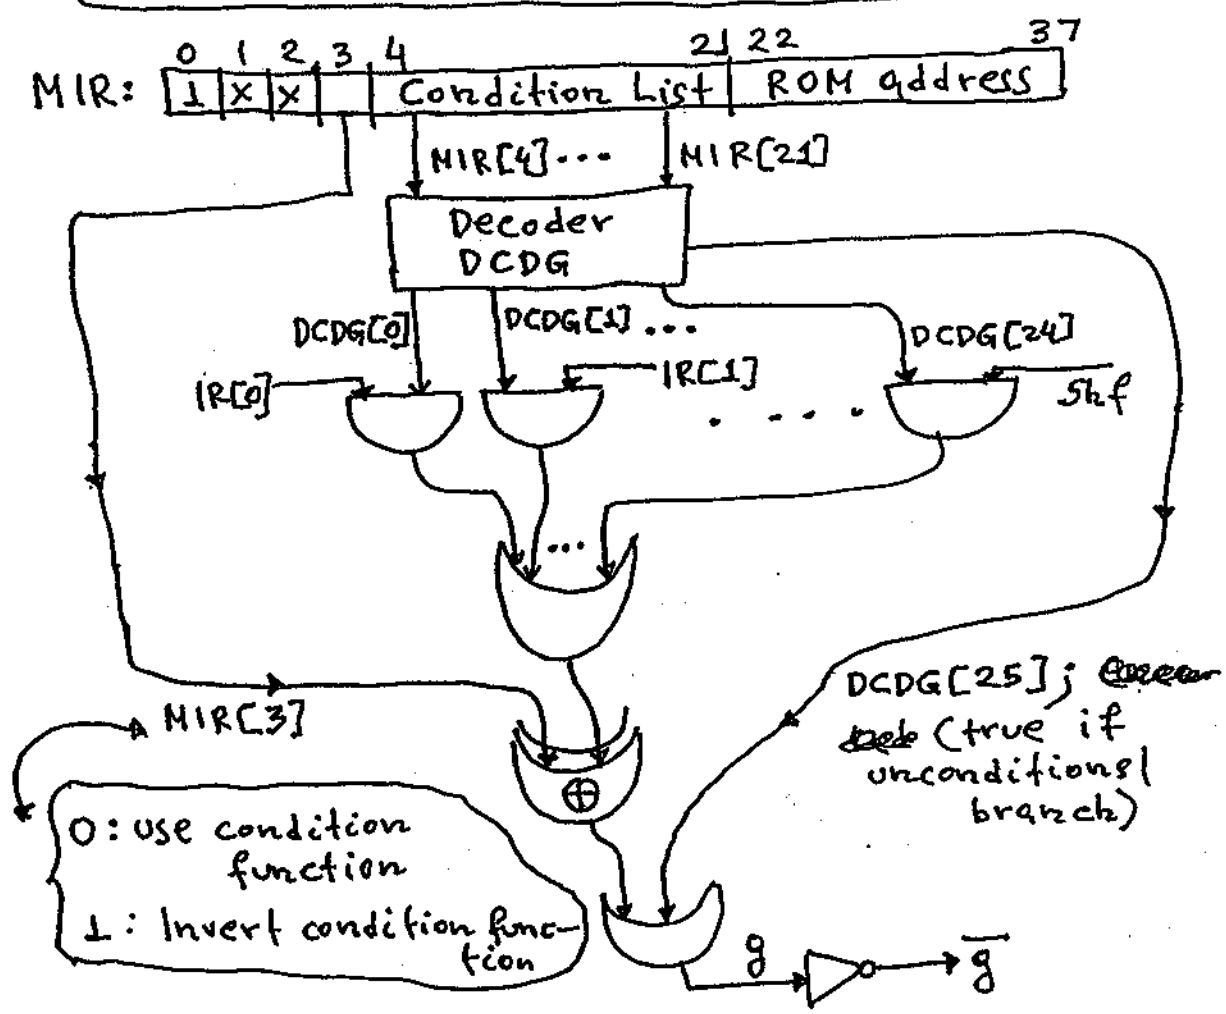 0 1 2 3 4 21 22 37
MIR: 1 x x Condition List ROM address
MIR[4] ... MIR[21]
Decoder
DCDG
DCDG[0] DCDG[1] ... DCDG[24]
IR[0] IR[1] Shf
. . . .
...
MIR[3]
DCDG[25];
(true if
unconditional
branch)
⊕
0: use condition
function
1: Invert condition func-
tion
g g̅